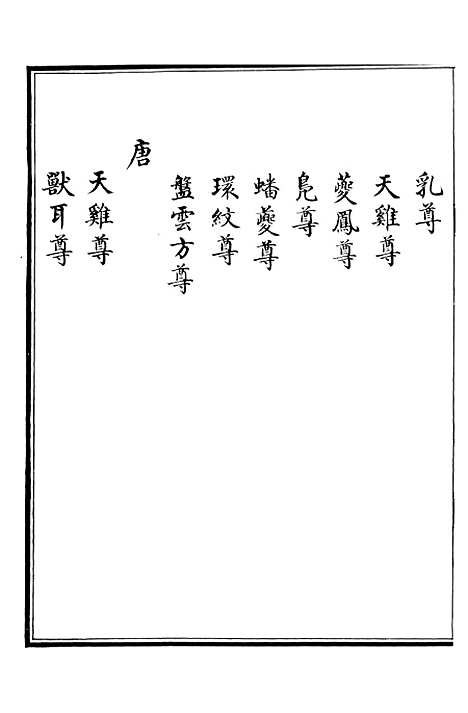 乳尊
天雞尊
夔鳳尊
鳬尊
蟠夔尊
環紋尊
盤雲方尊
唐
天雞尊
獸耳尊